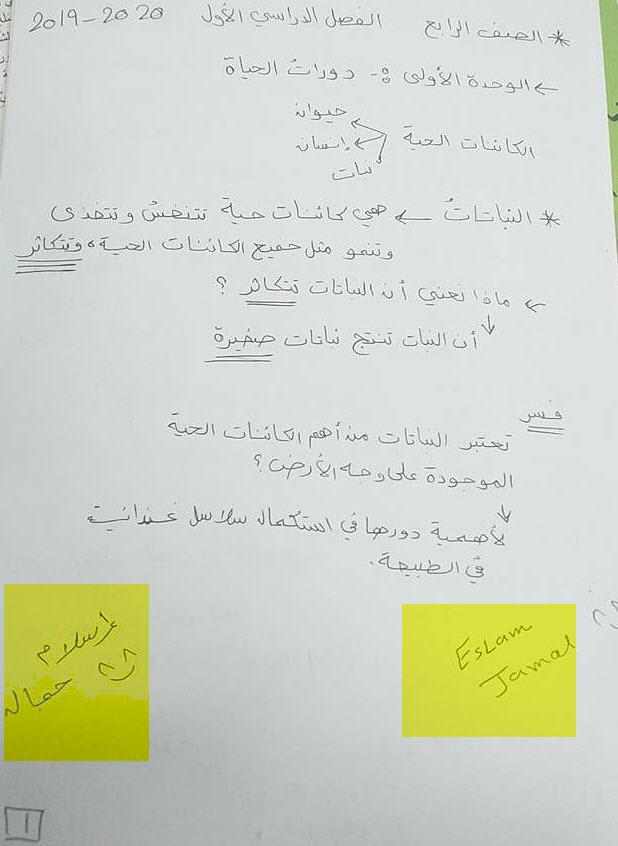 * الصف الرابع الفصل الدراسي الأول 2019-2020
← الوحدة الأولى :- دورات الحياة
الكائنات الحية
حيوان
إنسان
نبات
* النباتات ← هي كائنات حية تتنفس وتتغذى
وتنمو مثل جميع الكائنات الحية، وتتكاثر
← ماذا نعني أن النباتات تتكاثر ؟
↓
أن النبات تنتج نباتات صغيرة
فسر
تعتبر النباتات من أهم الكائنات الحية
الموجودة على وجه الأرض؟
↓
لأهمية دورها في استكمال سلاسل غذائية
في الطبيعة.
إسلام
جمال
Eslam
Jamal
1